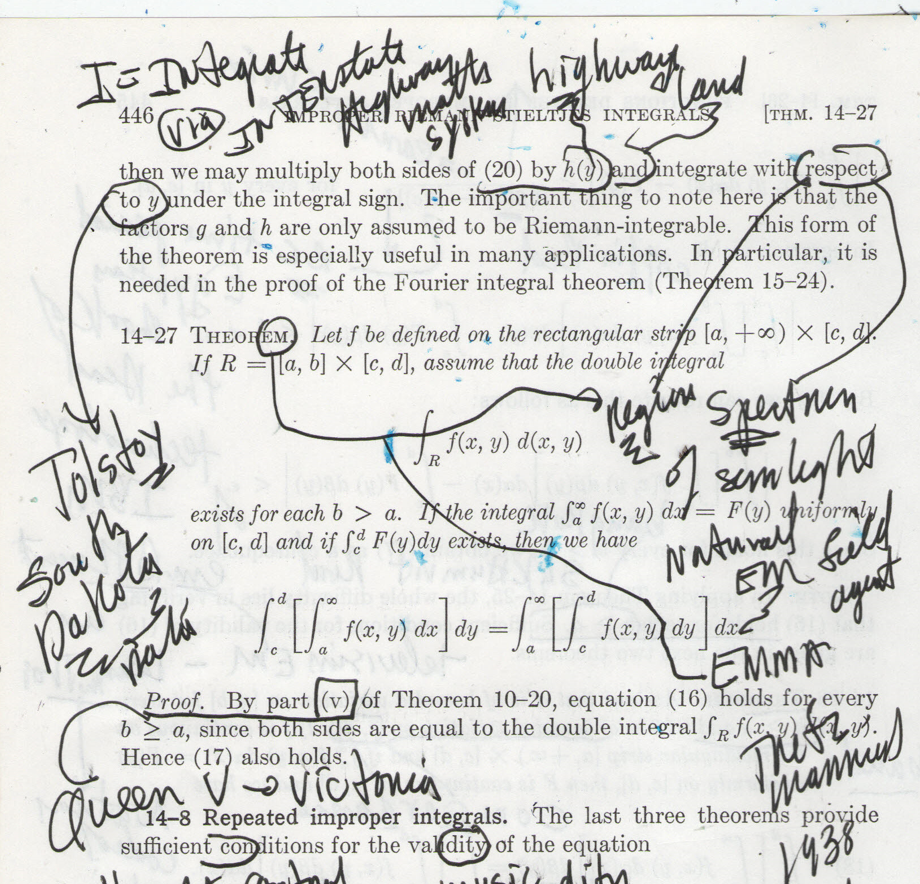 I = Integrate
Interstate
Highways
maths
system
highway
land
446
via
IMPROPER RIEMANN-STIELTJES INTEGRALS
[THM. 14–27
then we may multiply both sides of (20) by h(y) and integrate with respect
to y under the integral sign. The important thing to note here is that the
factors g and h are only assumed to be Riemann-integrable. This form of
the theorem is especially useful in many applications. In particular, it is
needed in the proof of the Fourier integral theorem (Theorem 15–24).
14–27 THEOREM. Let f be defined on the rectangular strip [a, +∞) × [c, d].
If R = [a, b] × [c, d], assume that the double integral
region
spectrum
∫_R f(x, y) d(x, y)
Tolstoy
of semilight
exists for each b > a. If the integral ∫_a^∞ f(x, y) dx = F(y) uniformly
on [c, d] and if ∫_c^d F(y)dy exists, then we have
Natural
EM field
agent
South
Dakota
∫_c^d [∫_a^∞ f(x, y) dx] dy = ∫_a^∞ [∫_c^d f(x, y) dy] dx.
EMMA
Proof. By part (v) of Theorem 10–20, equation (16) holds for every
b ≥ a, since both sides are equal to the double integral ∫_R f(x, y) d(x, y).
Hence (17) also holds.
Queen V → Victoria
14–8 Repeated improper integrals. The last three theorems provide
sufficient conditions for the validity of the equation
1938